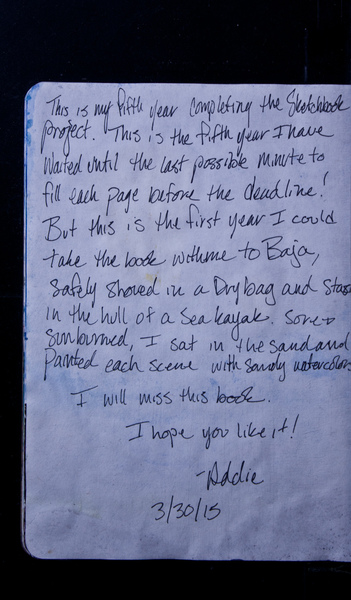 This is my fifth year completing the Sketchbook
project. This is the fifth year I have
waited until the last possible minute to
fill each page before the deadline!
But this is the first year I could
take the book with me to Baja,
safely shoved in a Drybag and
in the hull of a sea kayak. Sore &
sunburned, I sat in the sand and
painted each scene with sandy watercolors
I will miss this book.
I hope you like it!
-Addie
3/30/15